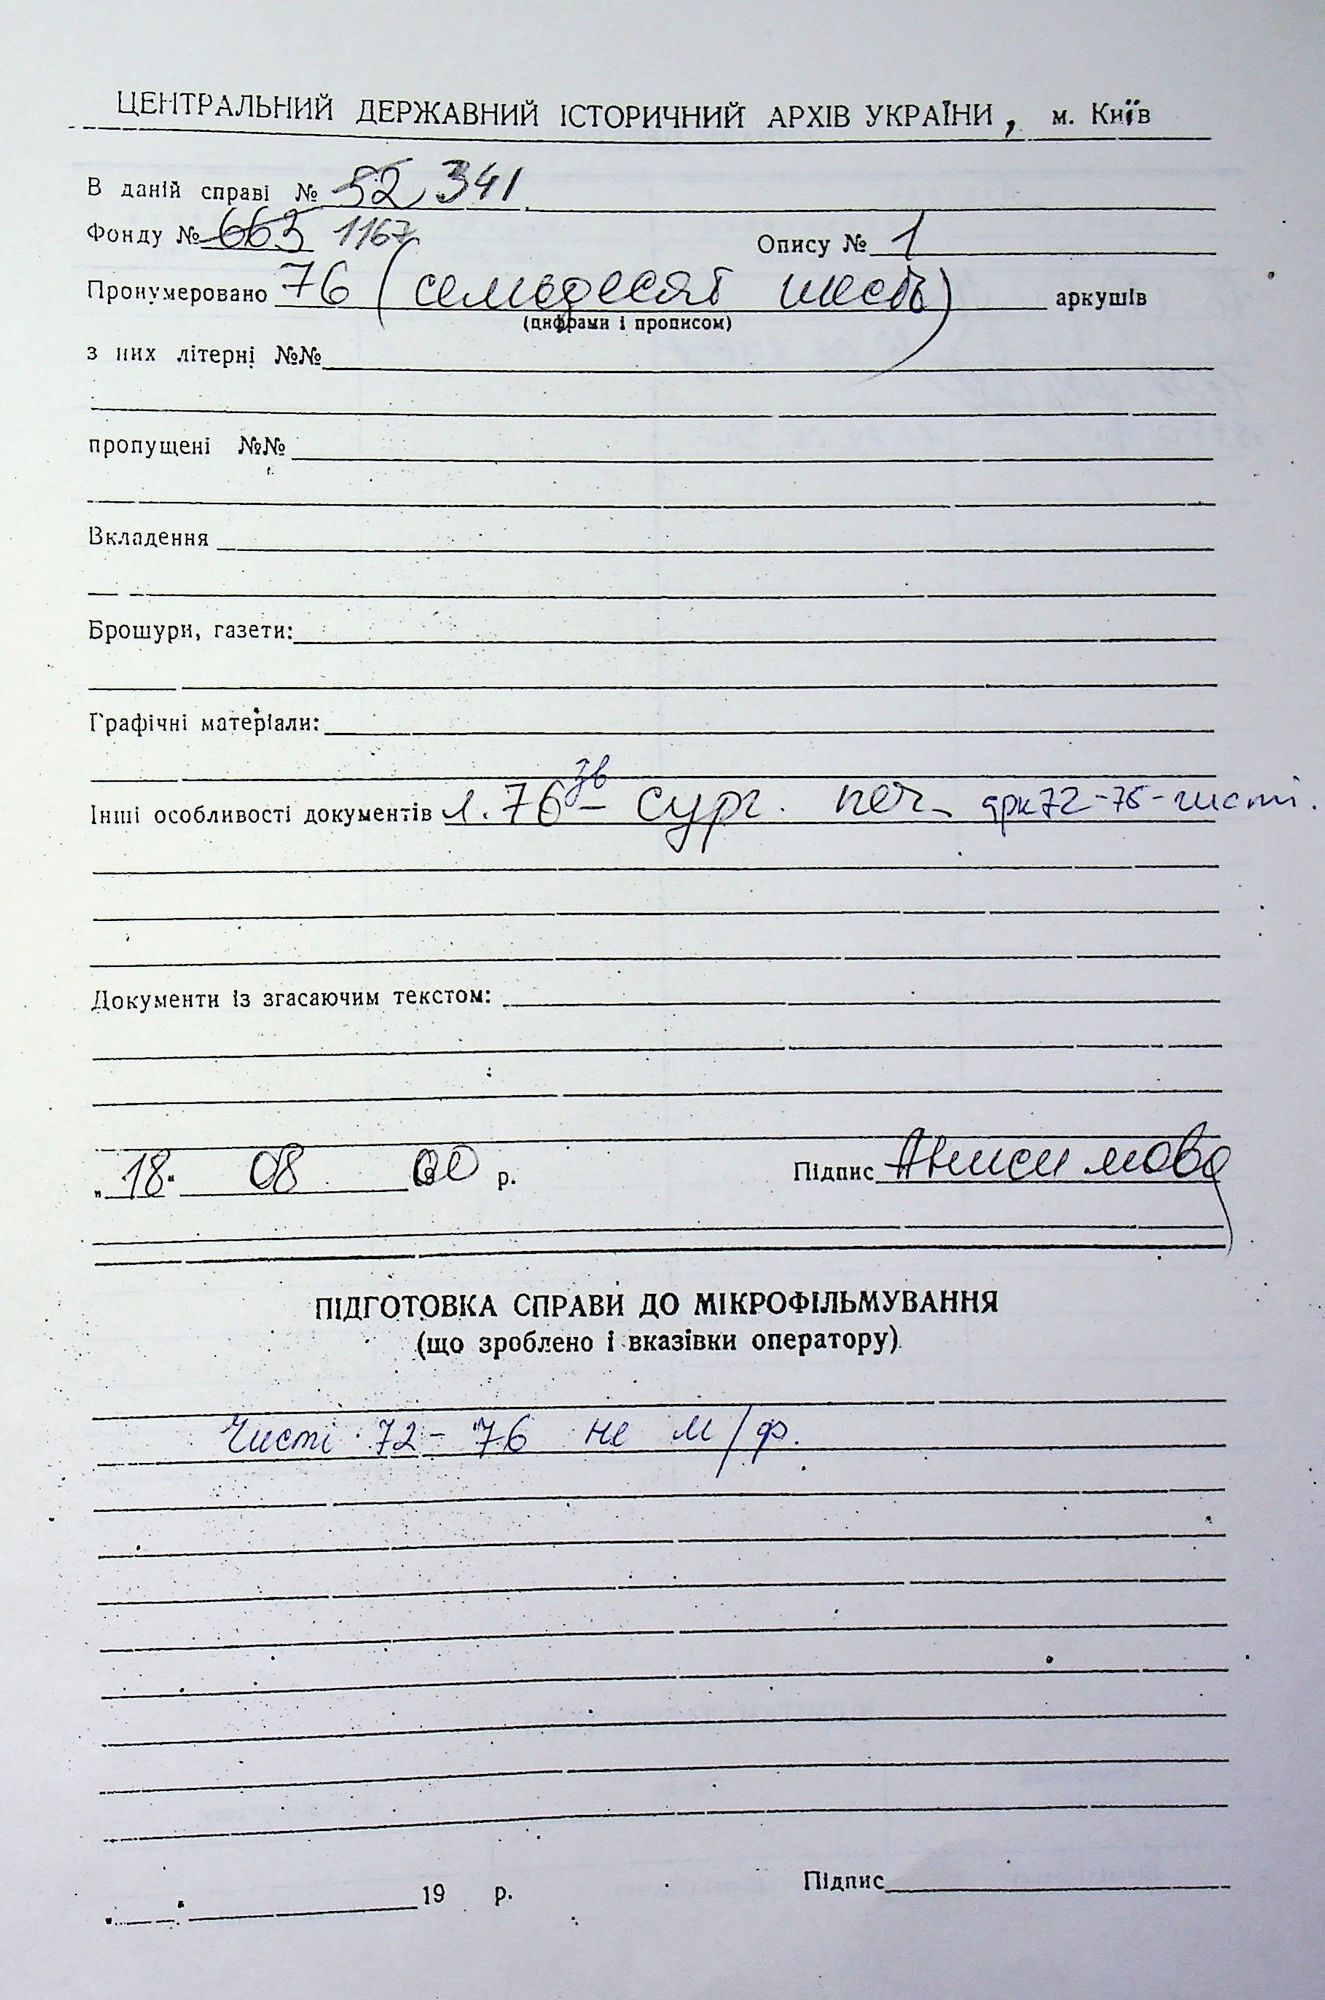 ЦЕНТРАЛЬНИЙ ДЕРЖАВНИЙ ІСТОРИЧНИЙ АРХІВ УКРАЇНИ, м. Київ
В даній справі № 52 341
Фонду № 663 1167 Опису № 1
Пронумеровано 76 (семьдесят шесть) аркушів
(цифрами і прописом)
з них літерні №№
пропущені №№
Вкладення
Брошури, газети:
Графічні матеріали:
Інші особливості документів л. 76 зв – сург. печ. арк 72-75 - чисті.
Документи із згасаючим текстом:
„18" 08 00 р. Підпис Анисимова
ПІДГОТОВКА СПРАВИ ДО МІКРОФІЛЬМУВАННЯ
(що зроблено і вказівки оператору)
Чисті 72 - 76 не м/ф.
19 р. Підпис